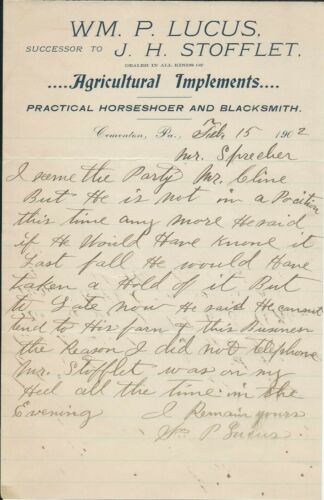 WM. P. LUCUS,
SUCCESSOR TO J. H. STOFFLET,
DEALER IN ALL KINDS OF
....Agricultural Implements....
PRACTICAL HORSESHOER AND BLACKSMITH.
Cementon, Pa., Feb. 15 1902
Mr. Sprecher
I seeme the Party Mr. Cline
But He is not in a Position
this time any more He said
if He Would Have knowe it
Last fall He would Have
taken a Hold of it But
to Late now He said He cannot
tend to His farm & this Business
the Reason I did not telephone
Mr. Stofflet was on my
Heel all the time in the
Evening I Remain yours
Wm P Lucus